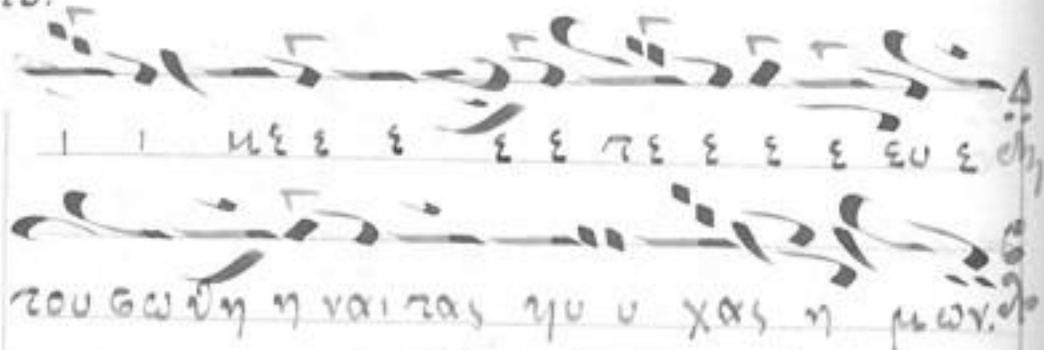 ι ι με ε ε ε ε πε ε ε ε ευ ε
του σω θη η ναι τας ψυ υ χας η μων.